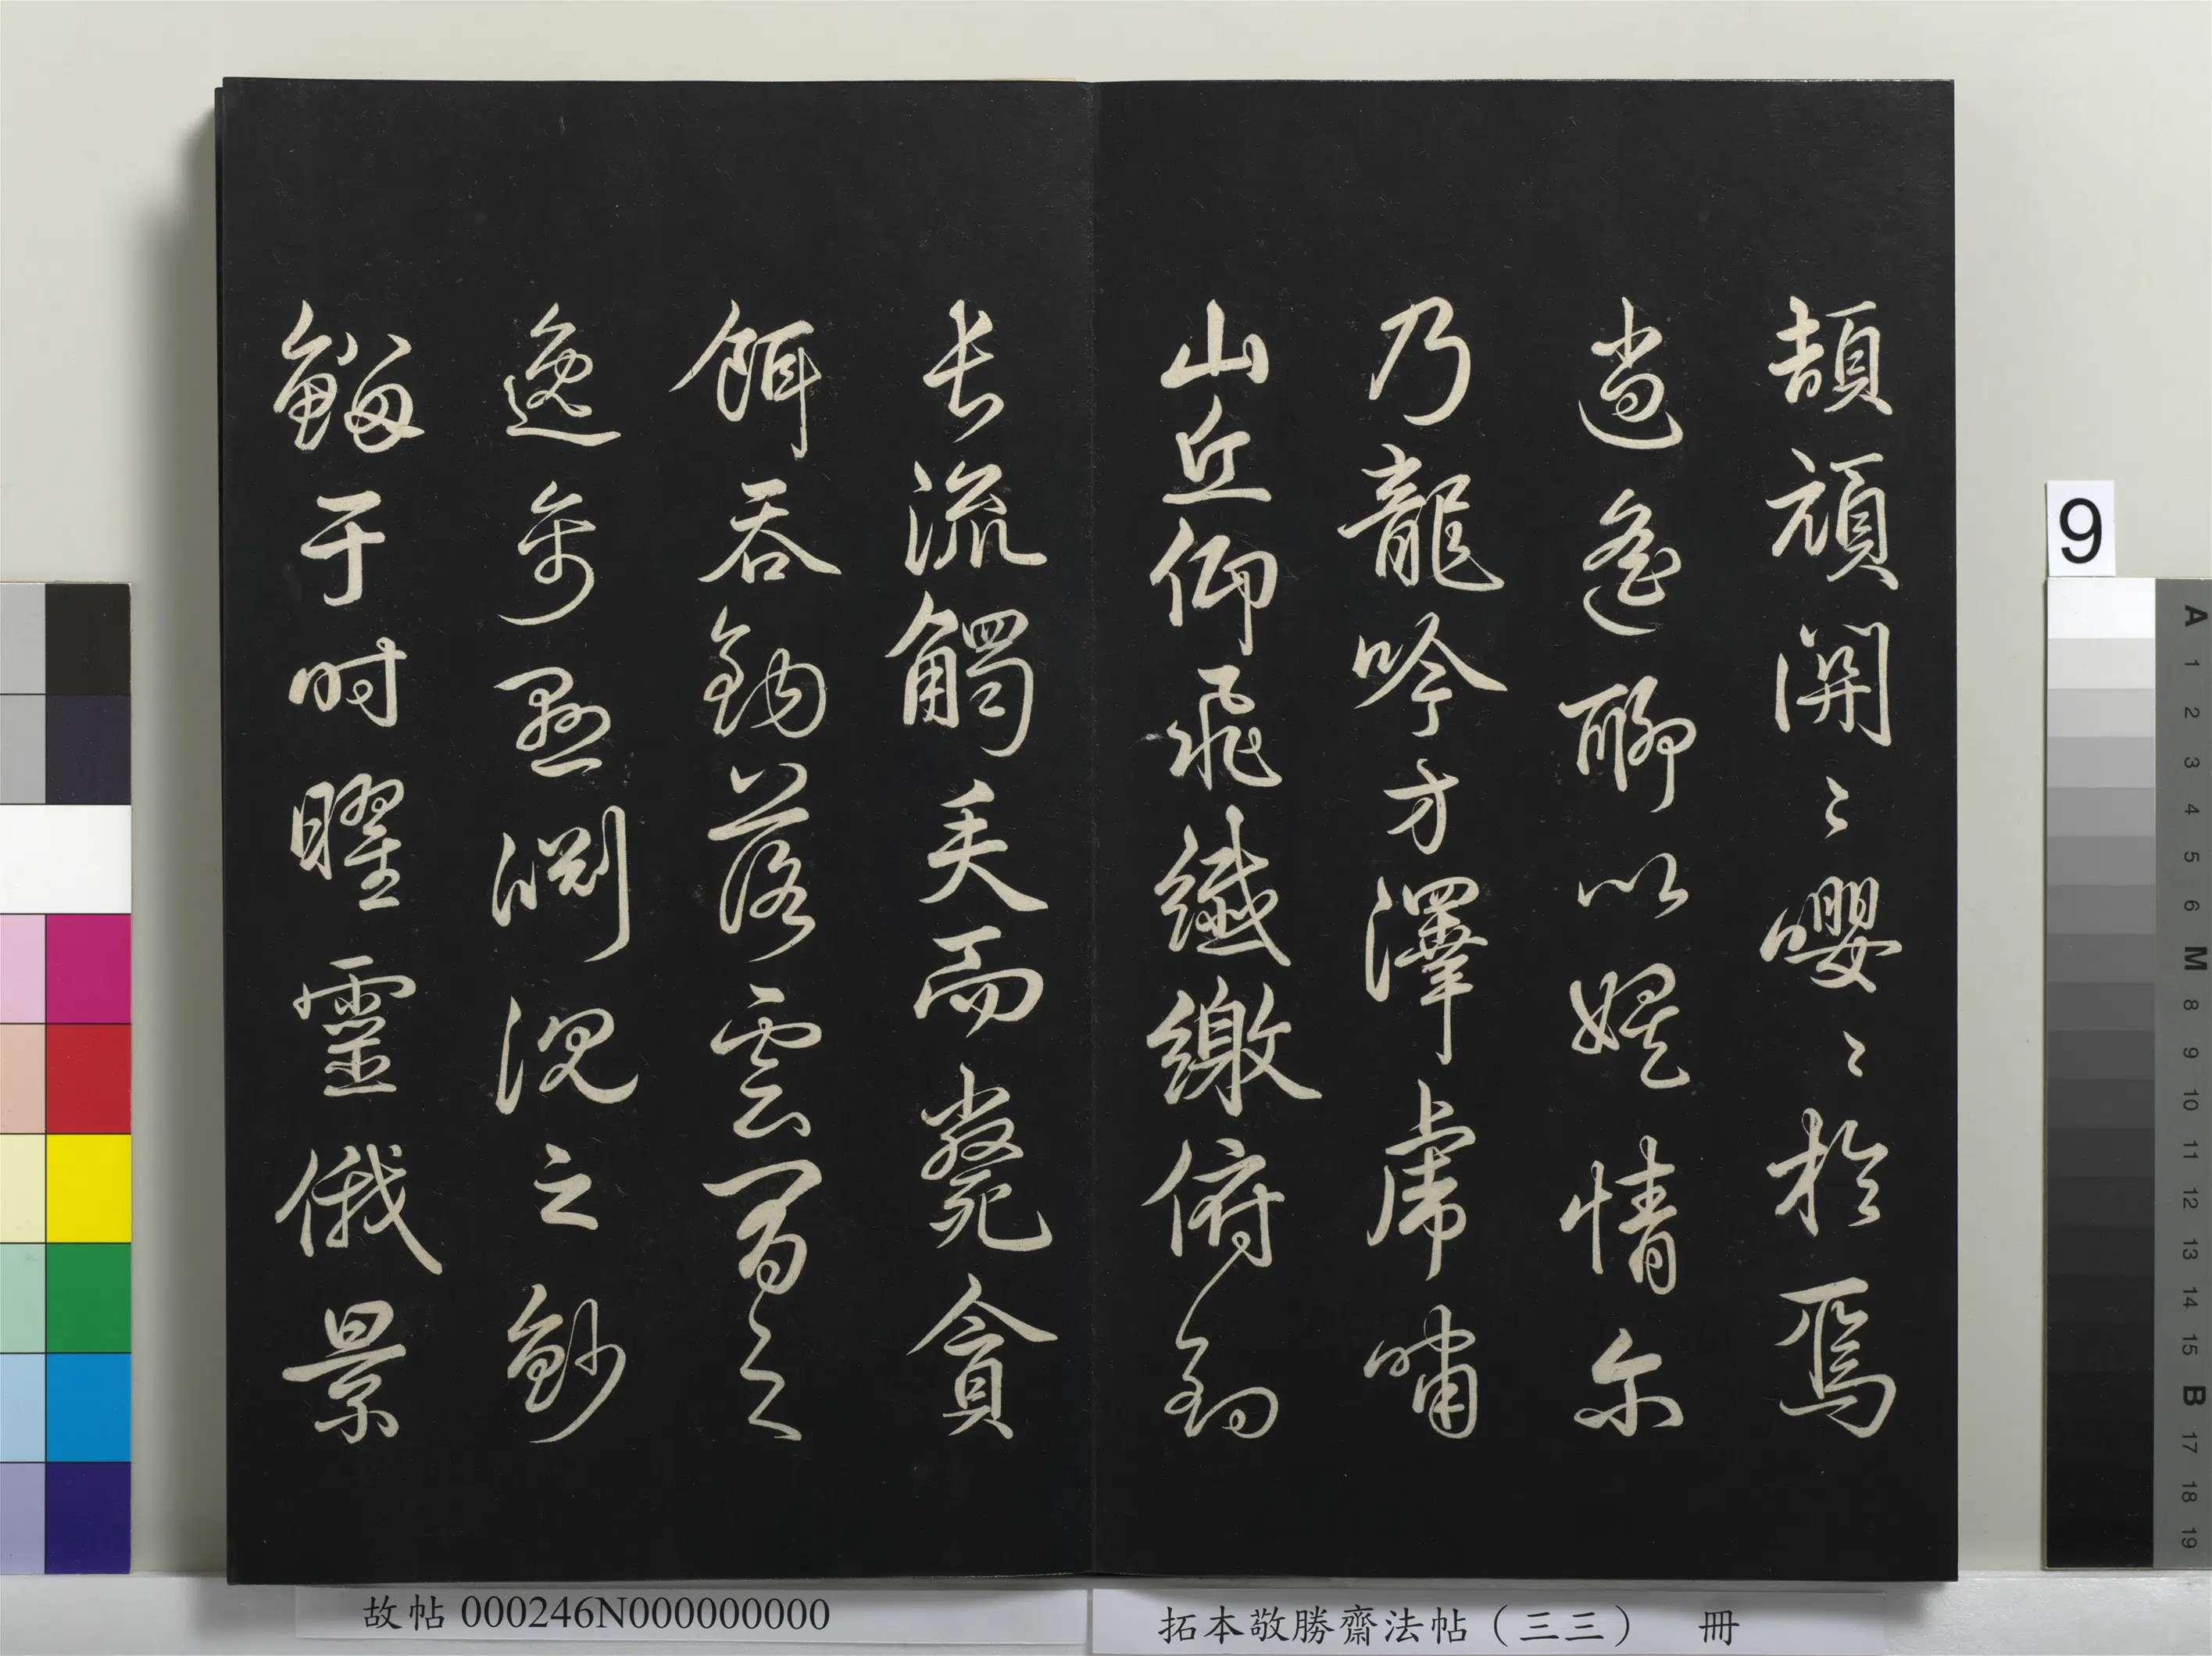 頡頏関〻嚶〻於焉
逍遙聊以娛情尔
乃龍吟方澤虎嘯
山丘仰飛纖繳俯釣
長流觸矢而斃貪
餌吞鉤落雲間之
逸禽懸淵沉之魦
鰡于时曜靈俄景
故帖 000246N000000000
拓本敬勝齋法帖（三三） 冊
9
A 1 2 3 4 5 6 M 8 9 10 11 12 13 14 15 B 17 18 19